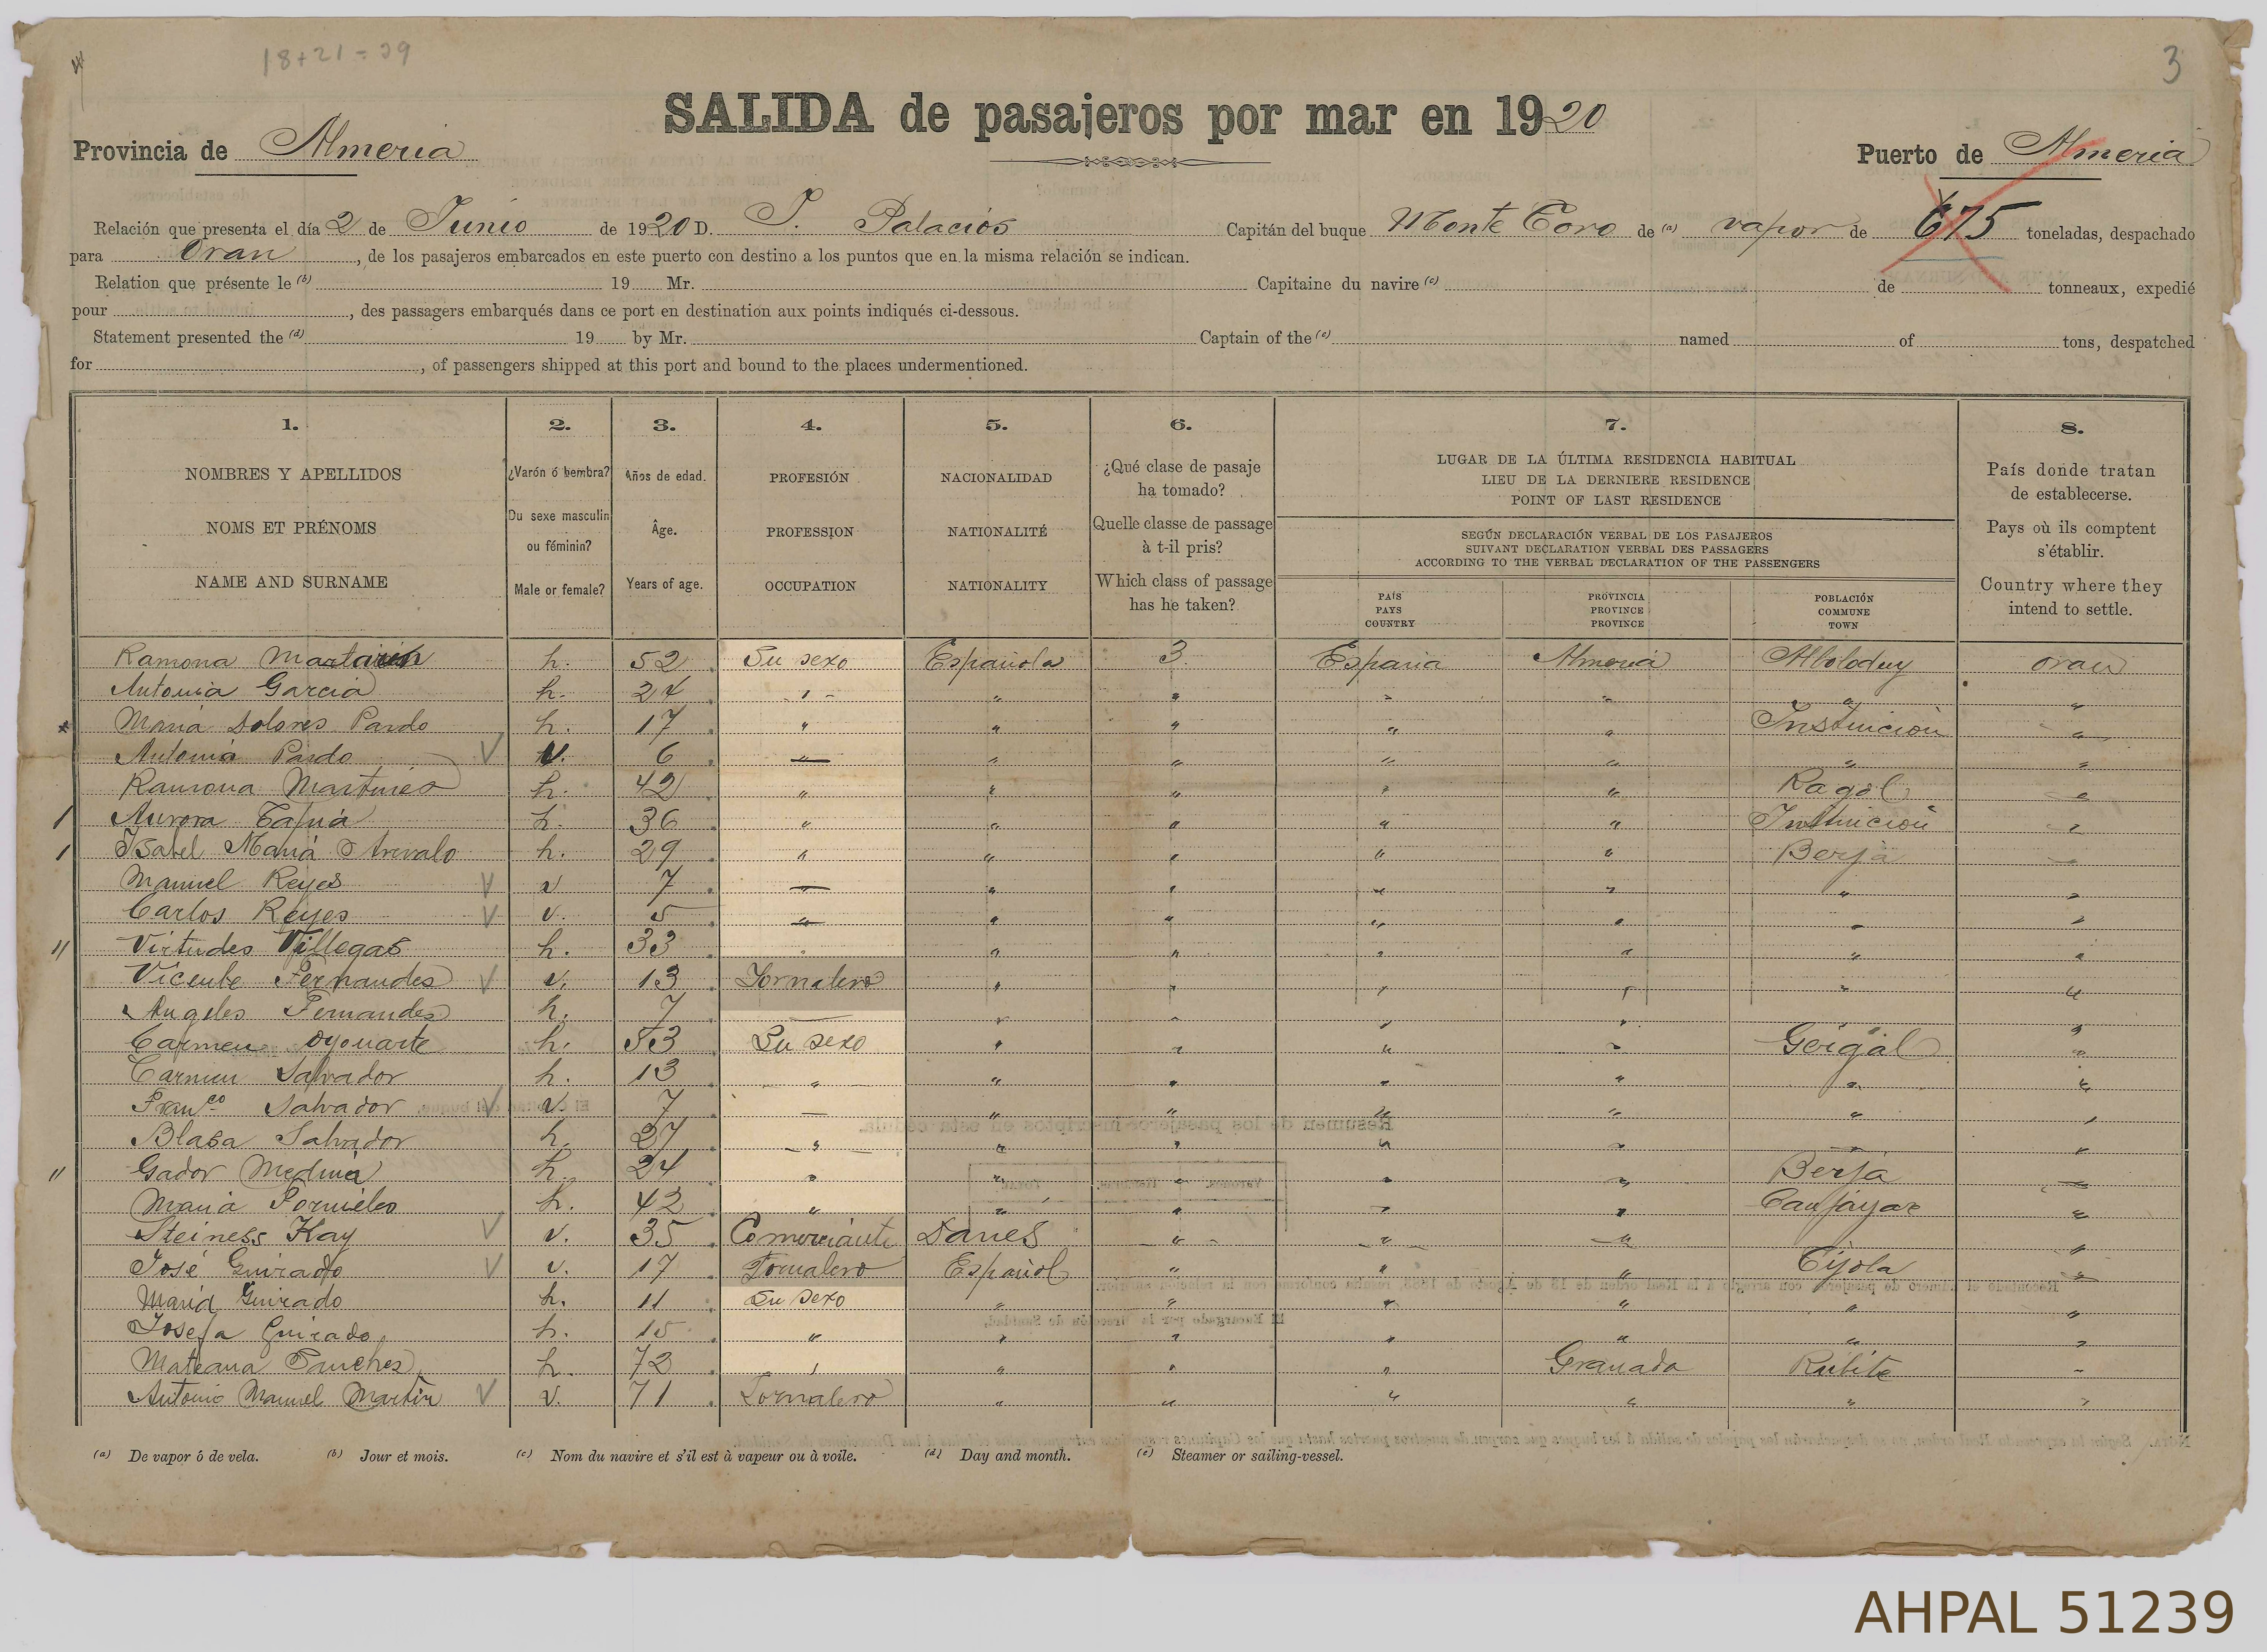 18+21=39
3
SALIDA de pasajeros por mar en 1920
Provincia de Almeria
Puerto de Almeria
Relación que presenta el día 2 de Junio de 1920 D. J. Palacios Capitán del buque Monte Toro de (a) vapor de 675 toneladas, despachado
para Oran, de los pasajeros embarcados en este puerto con destino a los puntos que en la misma relación se indican.
Relation que présente le (b) 19 Mr. Capitaine du navire (c) de tonneaux, expedié
pour , des passagers embarqués dans ce port en destination aux points indiqués ci-dessous.
Statement presented the (d) 19 by Mr. Captain of the (e) named of tons, despatched
for , of passengers shipped at this port and bound to the places undermentioned.
1. 2. 3. 4. 5. 6. 7. 8.
NOMBRES Y APELLIDOS
NOMS ET PRÉNOMS
NAME AND SURNAME
¿Varón ó hembra?
Du sexe masculin
ou féminin?
Male or female?
Años de edad.
Âge.
Years of age.
PROFESIÓN
PROFESSION
OCCUPATION
NACIONALIDAD
NATIONALITÉ
NATIONALITY
¿Qué clase de pasaje
ha tomado?
Quelle classe de passage
à t-il pris?
Which class of passage
has he taken?
LUGAR DE LA ÚLTIMA RESIDENCIA HABITUAL
LIEU DE LA DERNIERE RESIDENCE
POINT OF LAST RESIDENCE
SEGÚN DECLARACIÓN VERBAL DE LOS PASAJEROS
SUIVANT DECLARATION VERBAL DES PASSAGERS
ACCORDING TO THE VERBAL DECLARATION OF THE PASSENGERS
PAÍS
PAYS
COUNTRY
PROVINCIA
PROVINCE
PROVINCE
POBLACIÓN
COMMUNE
TOWN
País donde tratan
de establecerse.
Pays où ils comptent
s'établir.
Country where they
intend to settle.
Ramona h. 52 Su sexo Española 3 España Almeria Alboloduy Oran
Antonia Garcia h. 24 " " " " " " "
Maria Dolores Pardo h. 17 " " " " " Instinción "
Antonia Pardo v. 6 " " " " " " "
Ramona Martines h. 42 " " " " " Ragol "
Aurora Tapia h. 36 " " " " " Instinción "
Isabel Maria Arevalo h. 29 " " " " " Berja "
Manuel Reyes v 7 — " " " " " "
Carlos Reyes v. 5 " " " " " " "
Virtudes Villegas h. 33 " " " " " " "
Vicente Fernandes v. 13 Jornalero " " " " " "
Angeles Fernandes h. 7 — " " " " " "
Carmen Oyonarte h. 53 Su sexo " " " " Gergal "
Carmen Salvador h. 13 " " " " " " "
Franco Salvador v. 7 — " " " " " "
Blasa Salvador h. 27 " " " " " " "
Gador Medina h. 24 " " " " " Berja "
Maria Fornieles h. 42 " " " " " Canjayar "
Steiness Kay v. 35 Comerciante Danes " " " "
José Guirado v. 17 Jornalero Español " " " Tijola "
Maria Guirado h. 11 Su sexo " " " " " "
Josefa Guirado h. 15 " " " " " " "
Mateana Sanches h. 72 " " " " Granada Rubite "
Antonio Manuel Martin v. 71 Jornalero " " " " " "
(a) De vapor ó de vela. (b) Jour et mois. (c) Nom du navire et s'il est à vapeur ou à voile. (d) Day and month. (e) Steamer or sailing-vessel.
AHPAL 51239